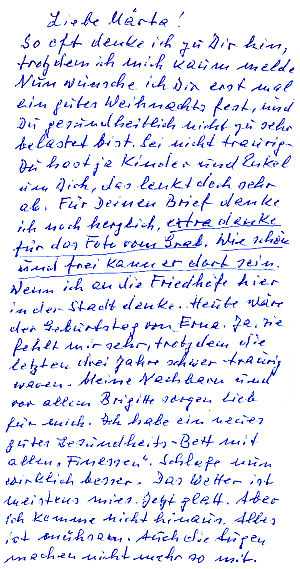 Liebe Márta!
So oft denke ich zu Dir hin,
trotzdem ich mich kaum melde
Nun wünsche ich Dir erst mal
ein gutes Weihnachtsfest, und
Du gesundheitlich nicht zu sehr
belastet bist. Sei nicht traurig-
Du hast ja Kinder und Enkel
um Dich, das lenkt doch sehr
ab. Für Deinen Brief danke
ich noch herzlich, extra danke
für das Foto vom Grab. Wie schön
und frei kann er dort sein.
Wenn ich an die Friedhöfe hier
in der Stadt denke. Heute wäre
der Geburtstag von Erna. Ja, sie
fehlt mir sehr, trotzdem die
letzten drei Jahre schwer-traurig
waren. Meine Nachbarn und
vor allem Brigitte sorgen lieb
für mich. Ich habe ein neues
gutes Gesundheits-Bett mit
allen „Finessen". Schlafe nun
wirklich besser. Das Wetter ist
meistens mies. Jetzt glatt. Aber
ich komme nicht hinaus. Alles
ist mühsam. Auch die Augen
machen nicht mehr so mit.